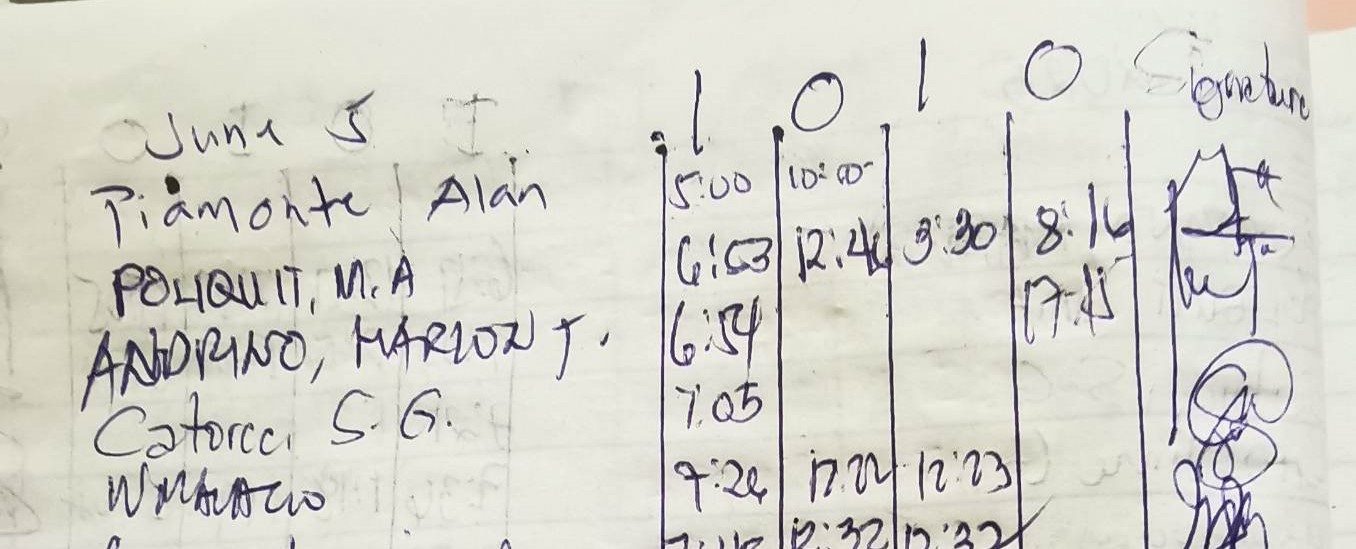 June 5 I O I O Signature
Piamonte Alan 5:00 10:00
POLIQUIT, M.A 6:53 12:46 3:30 8:16
ANDRINO, MARLON J. 6:54 17:45
Catorce, S.G. 7:05
7:26 12:22 12:23
12:32 12:32